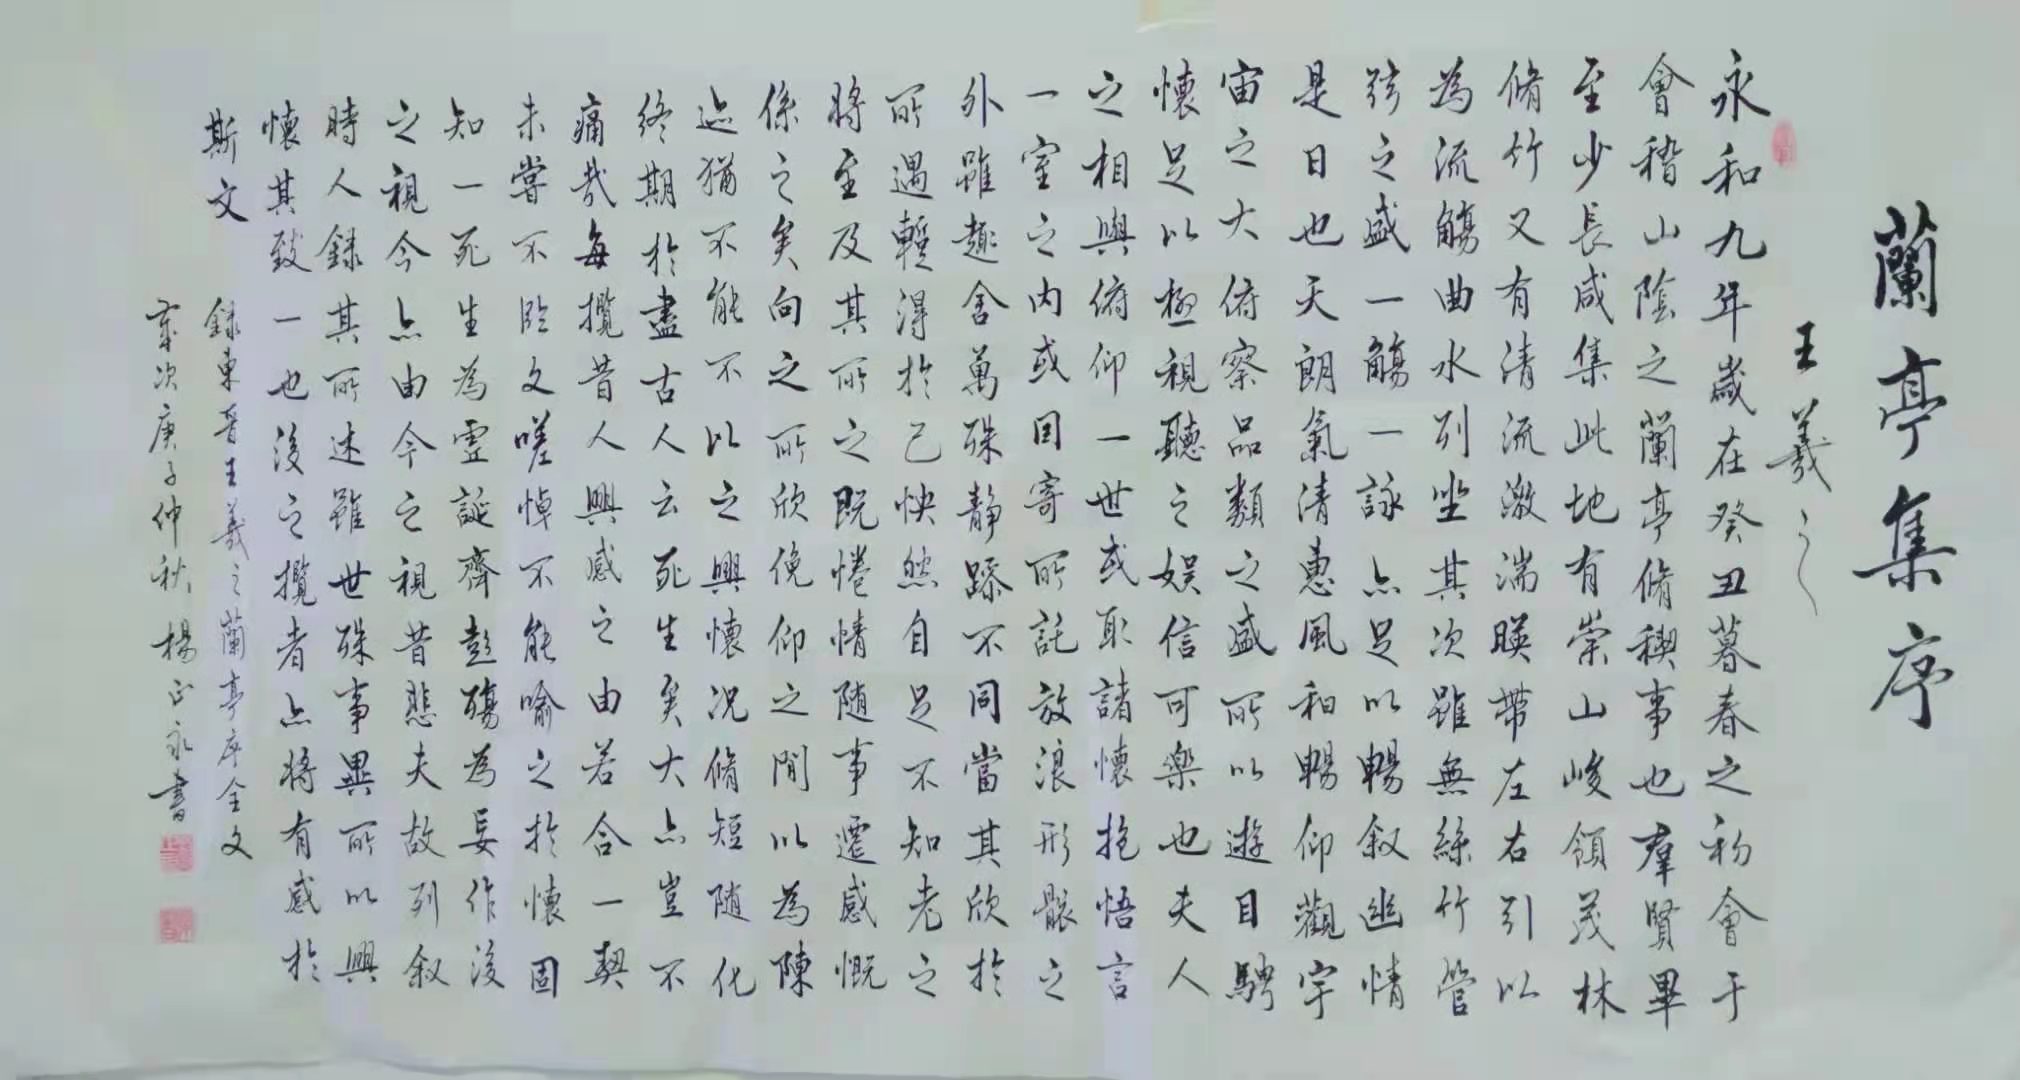 蘭亭集序
王羲之
永和九年歲在癸丑暮春之初會于
會稽山陰之蘭亭脩稧事也羣賢畢
至少長咸集此地有崇山峻領茂林
脩竹又有清流激湍暎帶左右引以
為流觴曲水列坐其次雖無絲竹管
弦之盛一觴一詠亦足以暢叙幽情
是日也天朗氣清惠風和暢仰觀宇
宙之大俯察品類之盛所以遊目騁
懷足以極視聽之娱信可樂也夫人
之相與俯仰一世或取諸懷抱悟言
一室之内或因寄所託放浪形骸之
外雖趣舍萬殊静躁不同當其欣於
所遇暫得於己怏然自足不知老之
將至及其所之既惓情随事遷感慨
係之矣向之所欣俛仰之閒以為陳
迹猶不能不以之興懷况脩短随化
終期於盡古人云死生亦大矣豈不
痛哉每攬昔人興感之由若合一契
未嘗不臨文嗟悼不能喻之於懷固
知一死生為虚誕齊彭殤為妄作後
之視今亦由今之視昔悲夫故列叙
時人録其所述雖世殊事異所以興
懷其致一也後之攬者亦將有感於
斯文
録東晉王羲之蘭亭序全文
歲次庚子仲秋楊正永書